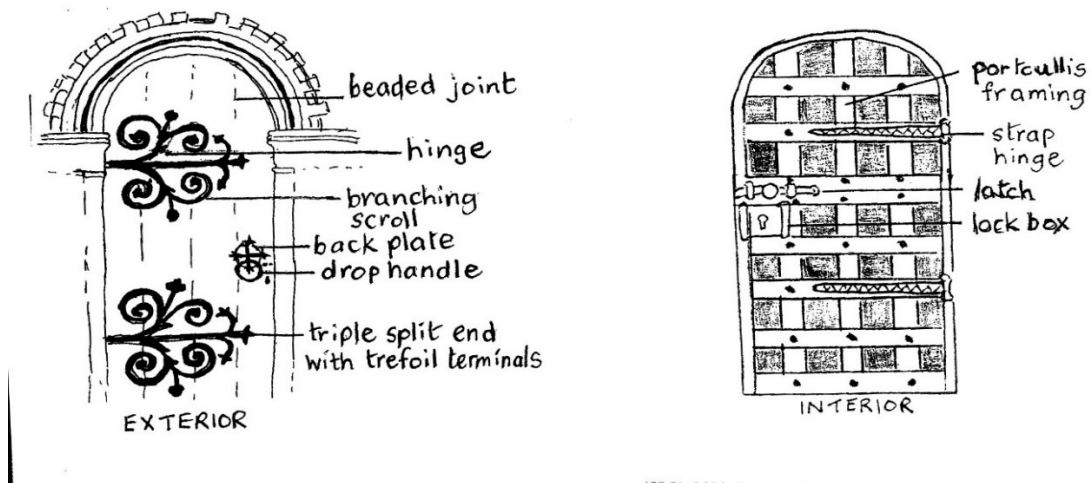 beaded joint
hinge
branching
scroll
back plate
drop handle
triple split end
with trefoil terminals
EXTERIOR
portcullis
framing
strap
hinge
latch
lock box
INTERIOR